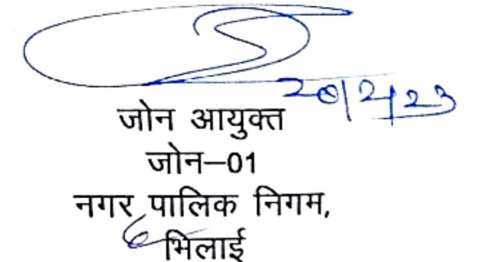 20/2/23
जोन आयुक्त
जोन–01
नगर पालिक निगम,
भिलाई